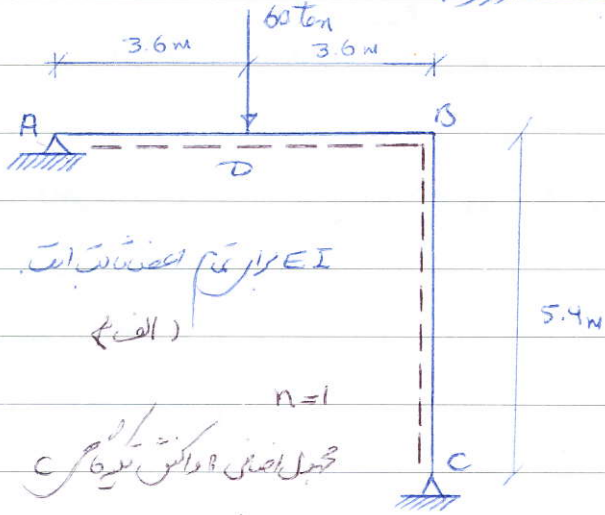 60 ton
3.6 m 3.6 m
A B
D
EI برای تمام اعضا ثابت است.
(الف)
5.4 m
n=1
مجهول اضافی واکنش تکیه‌گاهی C
C